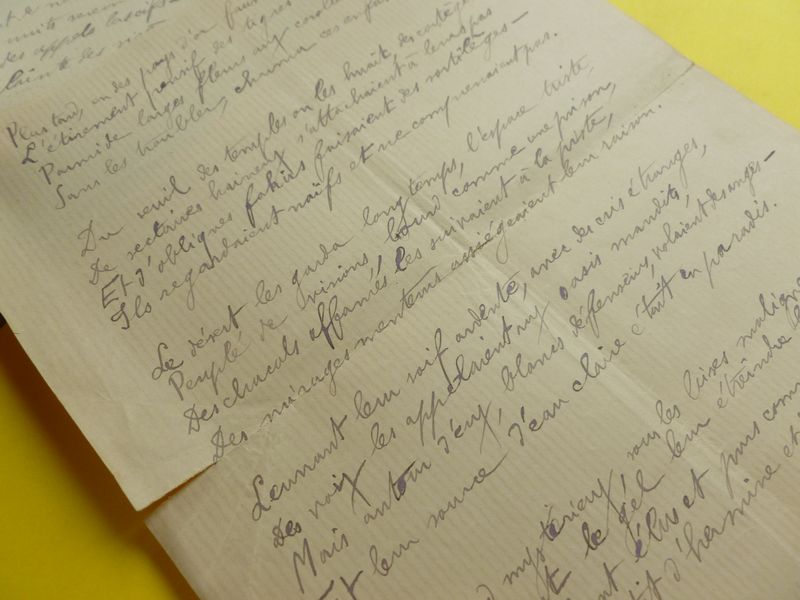 des appels
Plus tard, en des pays d'or fauve
L'étirement pensif des tigres
Parmi de larges fleurs aux corolles
Sans les troubler, charma ces enfan
Du seuil des temples où les huait des cortèges
De sectaires haineux s'attachaient à leurs pas
Et d'obliques fakirs faisaient des sortilèges –
Ils regardaient naïfs et ne comprenaient pas.
Le désert les garda longtemps, l'espace triste
Peuplé de visions, lourd comme une prison,
Des chacals affamés les suivaient à la piste,
Des mirages menteurs assiégeaient leur raison.
Leurrant leur soif ardente, avec des cris étranges,
Des voix les appelaient aux oasis maudits,
Mais autour d'eux, blancs défenseurs, volaient des anges –
Et leur source d'eau claire était en paradis.
d mystérieux, sous les luxes maligne
t le gel leur étreindre l
nt élus et purs comm
tif d'hermine et